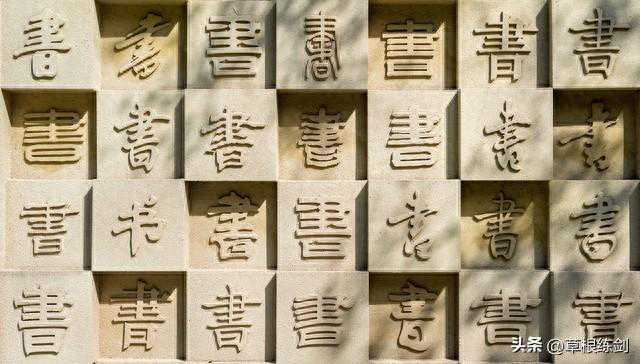 書書書書書書書
書書書書書書書
書书書書書書書
書書書書書書書
头条 @草根练剑